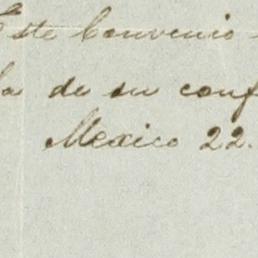 Este Convenio
de su conf
Mexico 22.